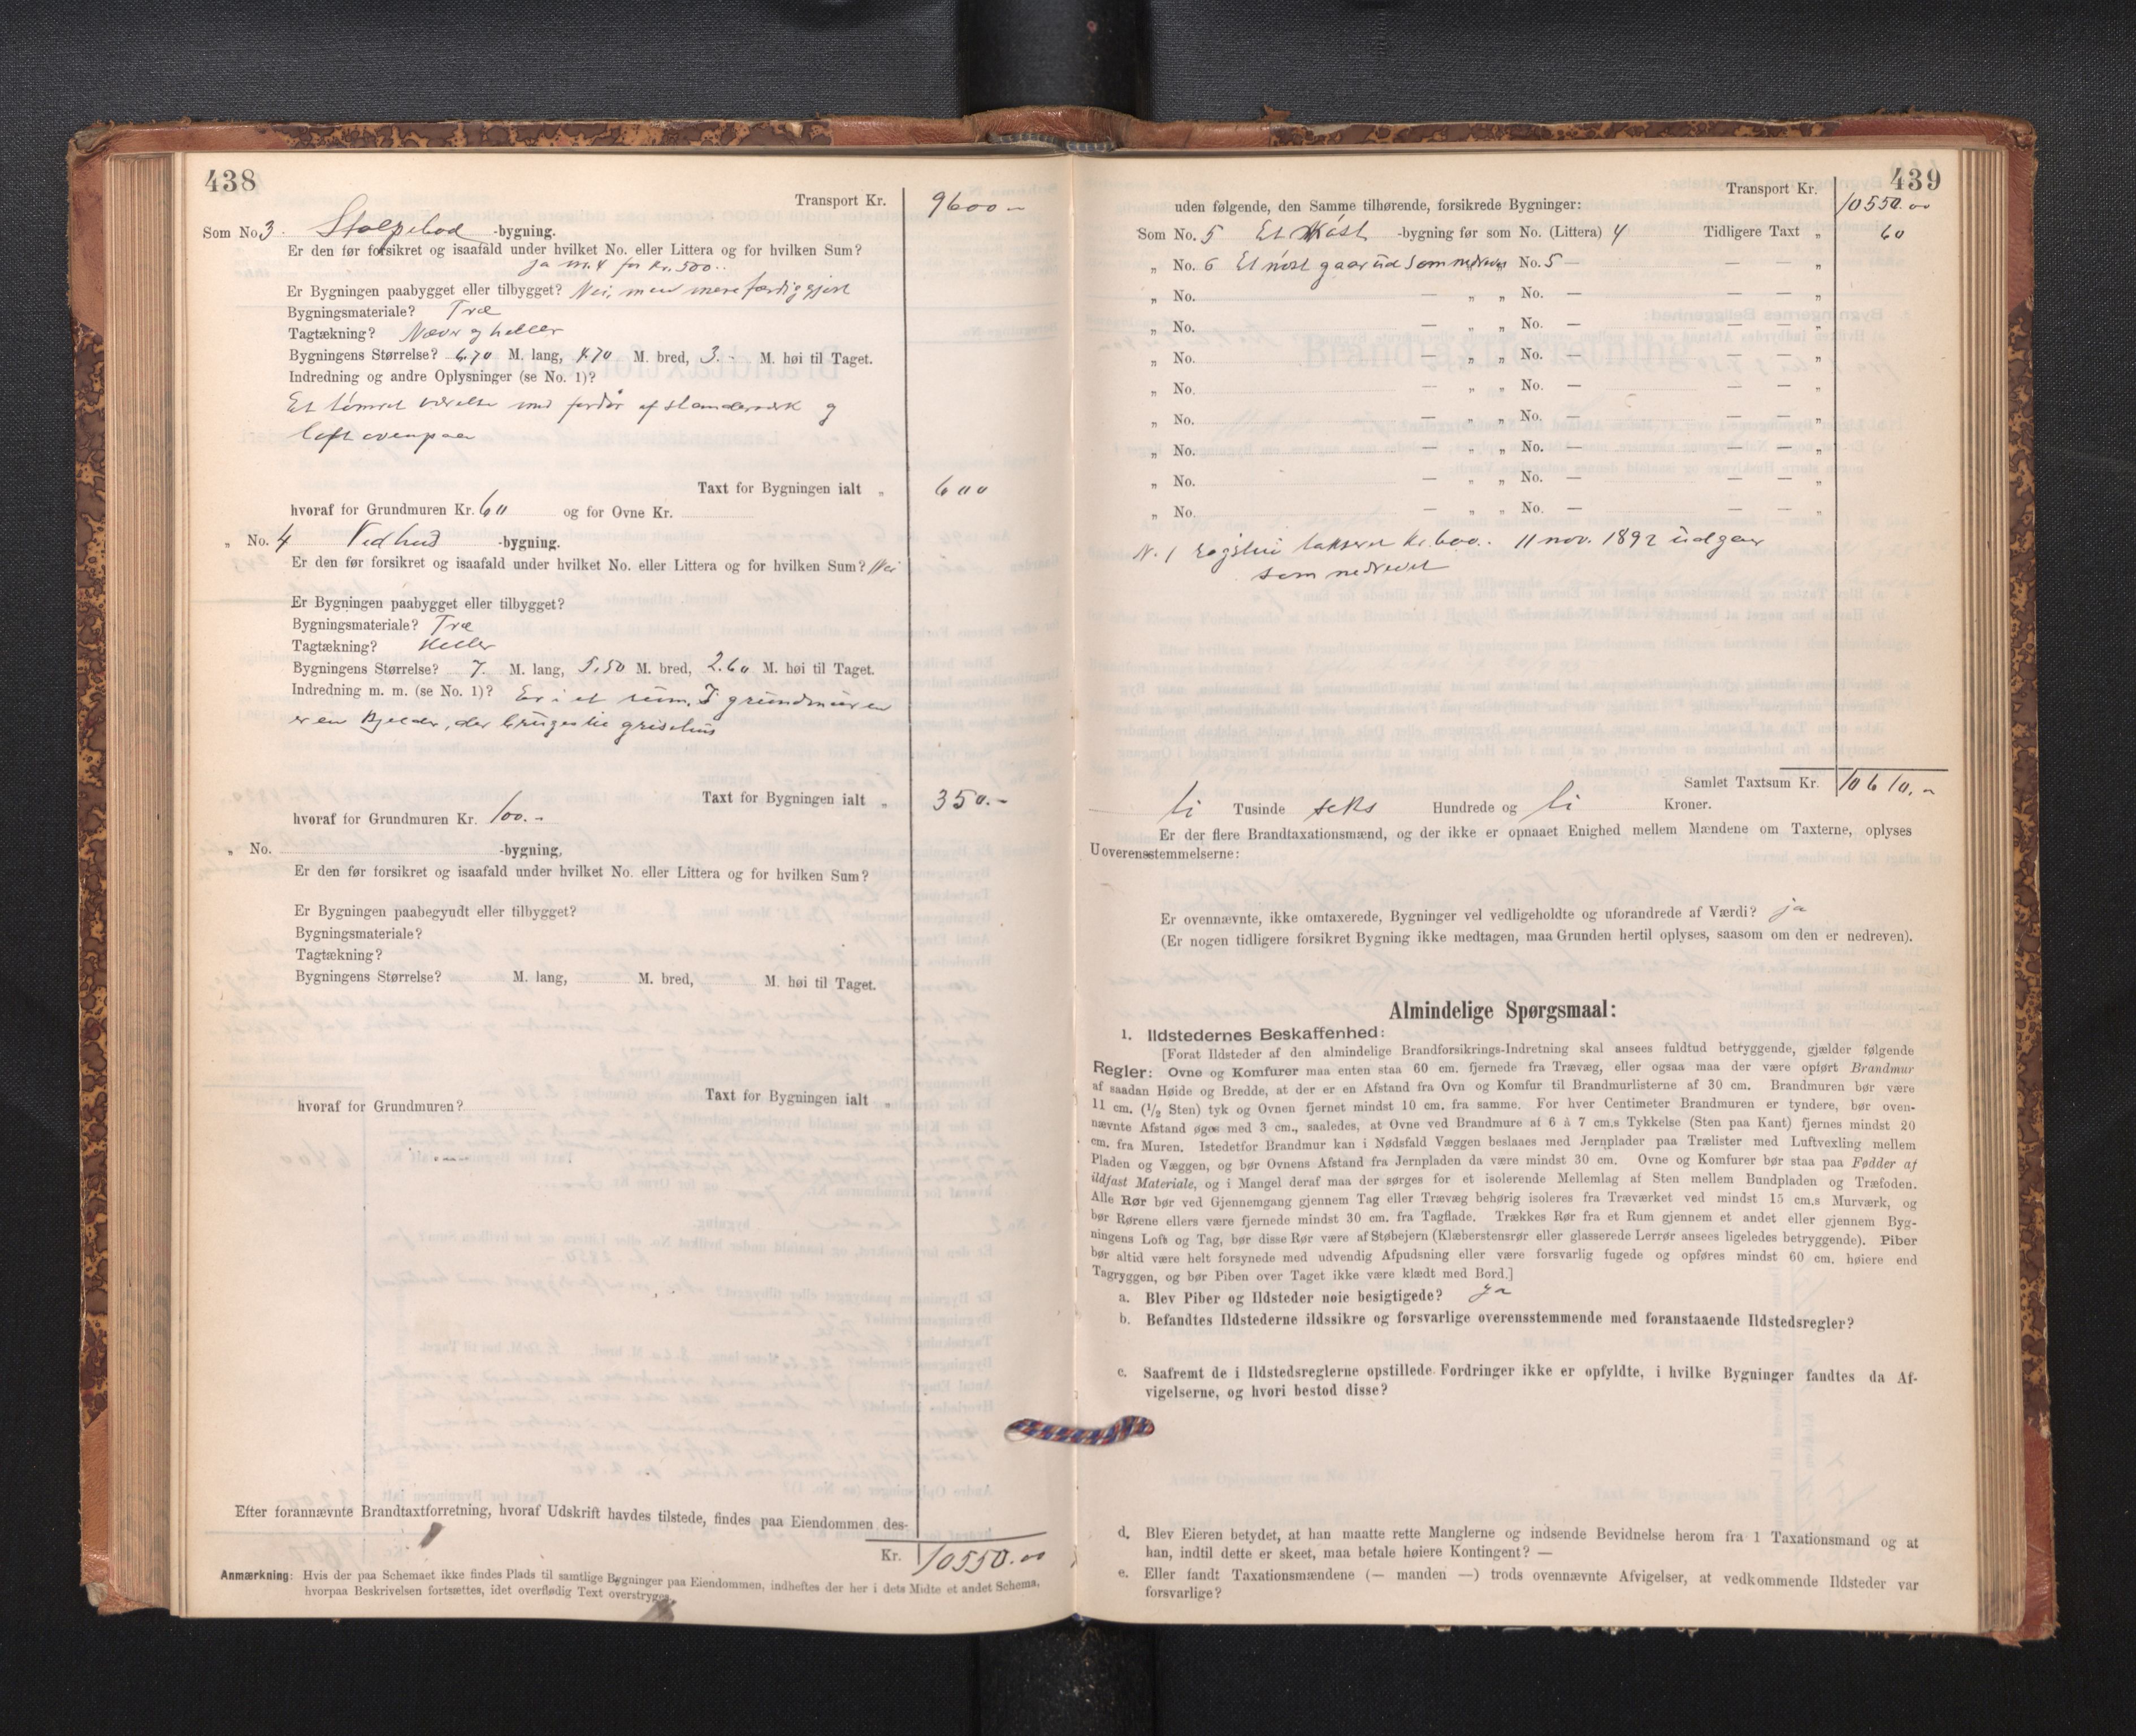 438
Transport Kr. 9600 –
Som No. 3. Stolpebod -bygning.
Er den før forsikret og isaafald under hvilket No. eller Littera og for hvilken Sum?
ja no. 4 for Kr. 500..
Er Bygningen paabygget eller tilbygget? Nei, men mere færdiggjort
Bygningsmateriale? Træ
Tagtækning? Næver og heller
Bygningens Størrelse? 6.70 M. lang, 4.70 M. bred, 3.- M. høi til Taget.
Indredning og andre Oplysninger (se No. 1)?
Et tømret værelse med fordør af standerværk og
loft ovenpaa
Taxt for Bygningen ialt „ 600
hvoraf for Grundmuren Kr. 60 og for Ovne Kr.
„ No. 4 Vedhus -bygning.
Er den før forsikret og isaafald under hvilket No. eller Littera og for hvilken Sum? Nei
Er Bygningen paabygget eller tilbygget?
Bygningsmateriale? Træ
Tagtækning? Heller
Bygningens Størrelse? 7. M. lang, 5.50 M. bred, 2.60 M. høi til Taget.
Indredning m. m. (se No. 1)? Er i et rum. I grundmuren
er en Kjelder, der bruges til grisehus
Taxt for Bygningen ialt „ 350.-
hvoraf for Grundmuren Kr. 100.-
„ No. -bygning,
Er den før forsikret og isaafald under hvilket No. eller Littera og for hvilken Sum?
Er Bygningen paabegyndt eller tilbygget?
Bygningsmateriale?
Tagtækning?
Bygningens Størrelse? M. lang, M. bred, M. høi til Taget.
Taxt for Bygningen ialt „
hvoraf for Grundmuren?
Efter forannævnte Brandtaxtforretning, hvoraf Udskrift havdes tilstede, findes paa Eiendommen des-
Kr. 10550.00
Anmærkning: Hvis der paa Schemaet ikke findes Plads til samtlige Bygninger paa Eiendommen, indheftes der her i dets Midte et andet Schema,
hvorpaa Beskrivelsen fortsættes, idet overflødig Text overstryges.
439
Transport Kr. 10550.00
uden følgende, den Samme tilhørende, forsikrede Bygninger:
Som No. 5 Et Nøst -bygning før som No. (Littera) 4 Tidligere Taxt „ 60
„ No. 6 Et nøst gaar ud som nedrevet No. 5 — — — „
„ No. — „ „ No. — — — „
„ No. — „ „ No. — — — „
„ No. — „ „ No. — — — „
„ No. — „ „ No. — — — „
„ No. — „ „ No. — — — „
„ No. — „ „ No. — — — „
„ No. — „ „ No. — — — „
„ No. — „ „ No. — — — „
N. 1 Røgstue takseret Kr. 600.. 11 nov. 1892 udgaar
som nedrevet
Samlet Taxtsum Kr. 10610.-
ti Tusinde seks Hundrede og ti Kroner.
Er der flere Brandtaxationsmænd, og der ikke er opnaaet Enighed mellem Mændene om Taxterne, oplyses
Uoverensstemmelserne:
Er ovennævnte, ikke omtaxerede, Bygninger vel vedligeholdte og uforandrede af Værdi? ja
(Er nogen tidligere forsikret Bygning ikke medtagen, maa Grunden hertil oplyses, saasom om den er nedreven).
Almindelige Spørgsmaal:
1. Ildstedernes Beskaffenhed:
[Forat Ildsteder af den almindelige Brandforsikrings-Indretning skal ansees fuldtud betryggende, gjælder følgende
Regler: Ovne og Komfurer maa enten staa 60 cm. fjernede fra Trævæg, eller ogsaa maa der være opført Brandmur
af saadan Høide og Bredde, at der er en Afstand fra Ovn og Komfur til Brandmurlisterne af 30 cm. Brandmuren bør være
11 cm. (1/2 Sten) tyk og Ovnen fjernet mindst 10 cm. fra samme. For hver Centimeter Brandmuren er tyndere, bør oven-
nævnte Afstand øges med 3 cm., saaledes, at Ovne ved Brandmure af 6 à 7 cm.s Tykkelse (Sten paa Kant) fjernes mindst 20
cm. fra Muren. Istedetfor Brandmur kan i Nødsfald Væggen beslaaes med Jernplader paa Trælister med Luftvexling mellem
Pladen og Væggen, og bør Ovnens Afstand fra Jernpladen da være mindst 30 cm. Ovne og Komfurer bør staa paa Fødder af
ildfast Materiale, og i Mangel deraf maa der sørges for et isolerende Mellemlag af Sten mellem Bundpladen og Træfoden.
Alle Rør bør ved Gjennemgang gjennem Tag eller Trævæg behørig isoleres fra Træværket ved mindst 15 cm.s Murværk, og
bør Rørene ellers være fjernede mindst 30 cm. fra Tagflade. Trækkes Rør fra et Rum gjennem et andet eller gjennem Byg-
ningens Loft og Tag, bør disse Rør være af Støbejern (Klæberstensrør eller glasserede Lerrør ansees ligeledes betryggende). Piber
bør altid være helt forsynede med udvendig Afpudsning eller være forsvarlig fugede og opføres mindst 60 cm. høiere end
Tagryggen, og bør Piben over Taget ikke være klædt med Bord.]
a. Blev Piber og Ildsteder nøie besigtigede? Ja
b. Befandtes Ildstederne ildssikre og forsvarlige overensstemmende med foranstaaende Ildstedsregler?
c. Saafremt de i Ildstedsreglerne opstillede Fordringer ikke er opfyldte, i hvilke Bygninger fandtes da Af-
vigelserne, og hvori bestod disse?
d. Blev Eieren betydet, at han maatte rette Manglerne og indsende Bevidnelse herom fra 1 Taxationsmand og at
han, indtil dette er skeet, maa betale høiere Kontingent? —
e. Eller fandt Taxationsmændene (— manden —) trods ovennævnte Afvigelser, at vedkommende Ildsteder var
forsvarlige?